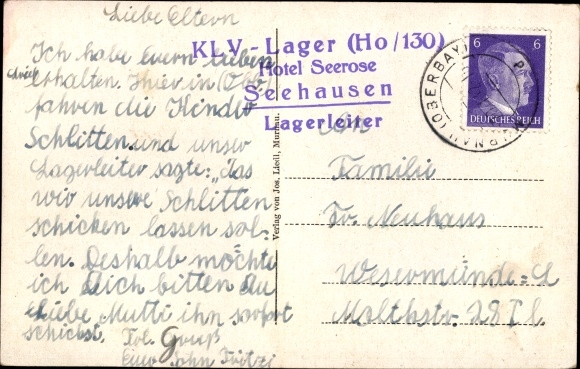 Liebe Eltern
Ich habe Euern lieben
Brief erhalten. Hier in (Obb.)
fahren die Kinder
Schlitten und unser
Lagerleiter sagte: „Das
wir unsere Schlitten
schicken lassen sol-
len. Deshalb möchte
ich Dich bitten du
Liebe Mutti ihn sofort
schickst. Fol. Gruß
Euer Sohn Fritzi
KLV-Lager (Ho/130)
Hotel Seerose
Seehausen
Lagerleiter
An
Familie
Fr. Neuhaus
Wesermünde-L
Malthstr. 28 I l.
Verlag von Jos. Liedl, Murnau.
6 6
DEUTSCHES REICH
MURNAU (OBERBAY)